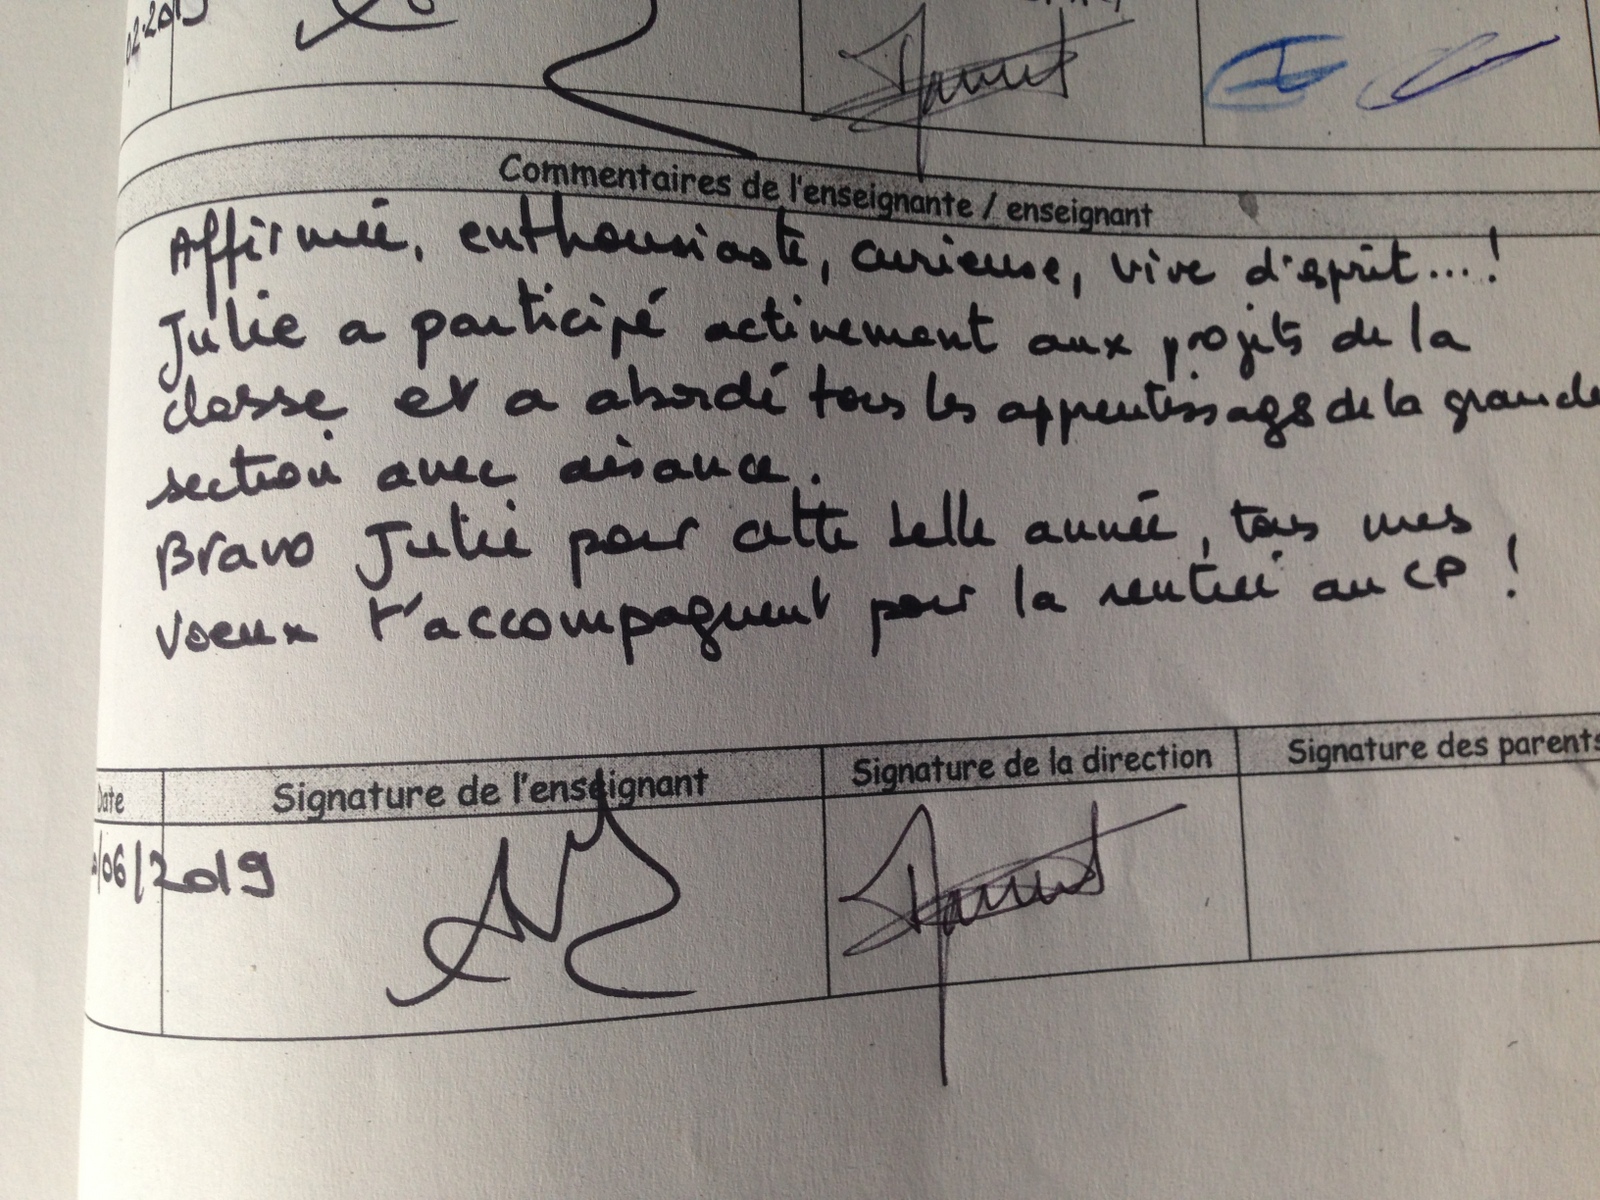 02.2019
Commentaires de l'enseignante / enseignant
Affirmée, enthousiaste, curieuse, vive d'esprit...!
Julie a participé activement aux projets de la
classe et a abordé tous les apprentissages de la grande
section avec aisance.
Bravo Julie pour cette belle année, tous mes
voeux t'accompagnent pour la rentrée au CP !
Date
Signature de l'enseignant
Signature de la direction
Signature des parents
/06/2019